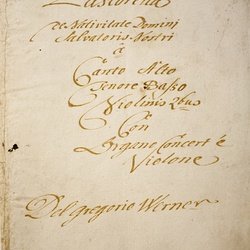 Pastorella
De Nativitate Domini
Salvatoris Nostri
â
Canto Alto
Tenore Baßo
Violinis 2bus
Con
Organo Concert è
Violone
Del Gregorio Werner